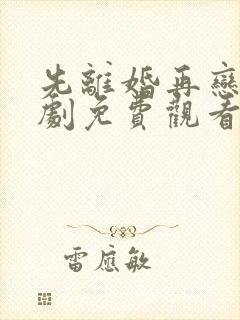 先離婚再戀
劇免費觀看
雷應敏